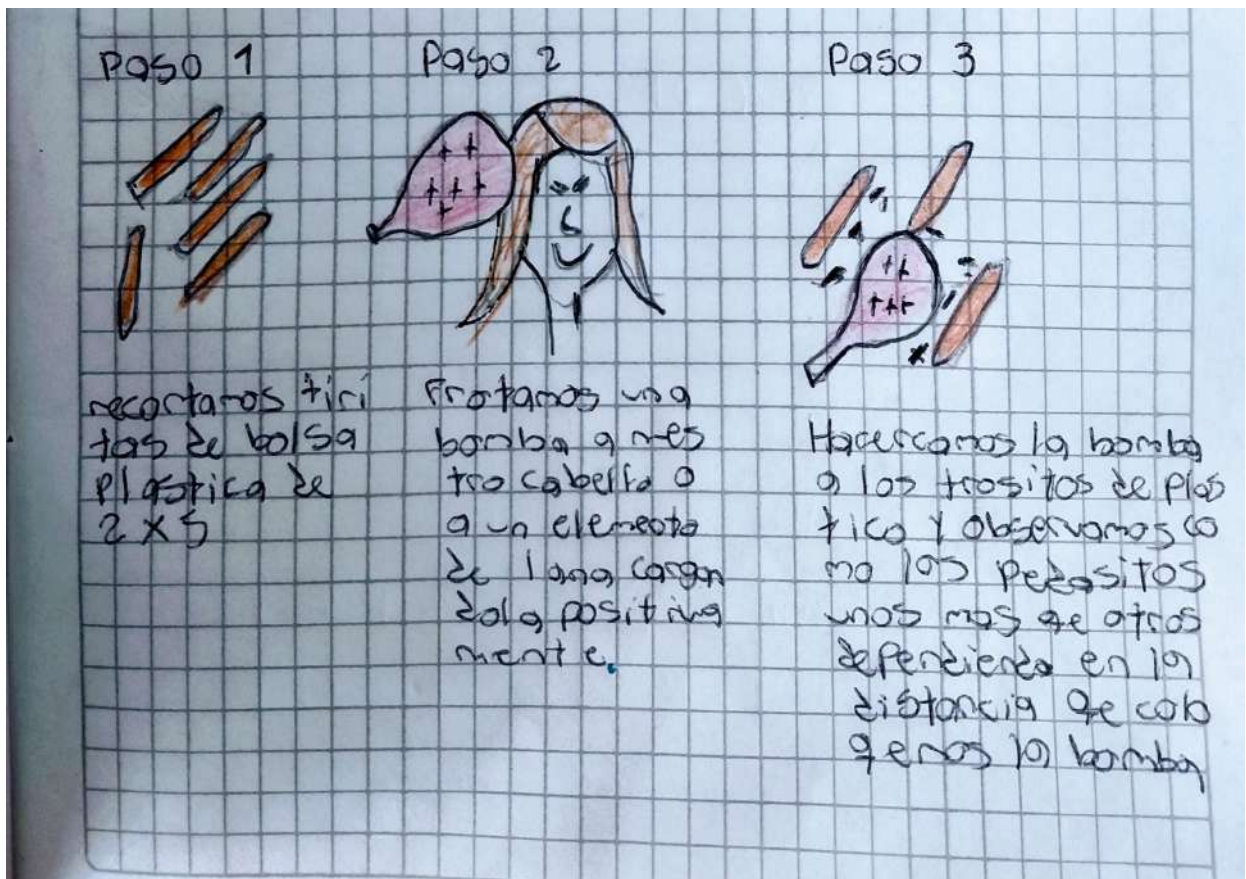 Paso 1
recortamos tiri
tas de bolsa
plastica de
2 x 5
Paso 2
Frotamos una
bomba a nues
tro cabello o
a un elemento
de lana cargan
dola positiva
mente.
Paso 3
Hacercamos la bomba
a los trositos de plas
tico y observamos co
mo los pedasitos
unos mas qe otros
dependiendo en la
distancia qe colo
qemos la bomba